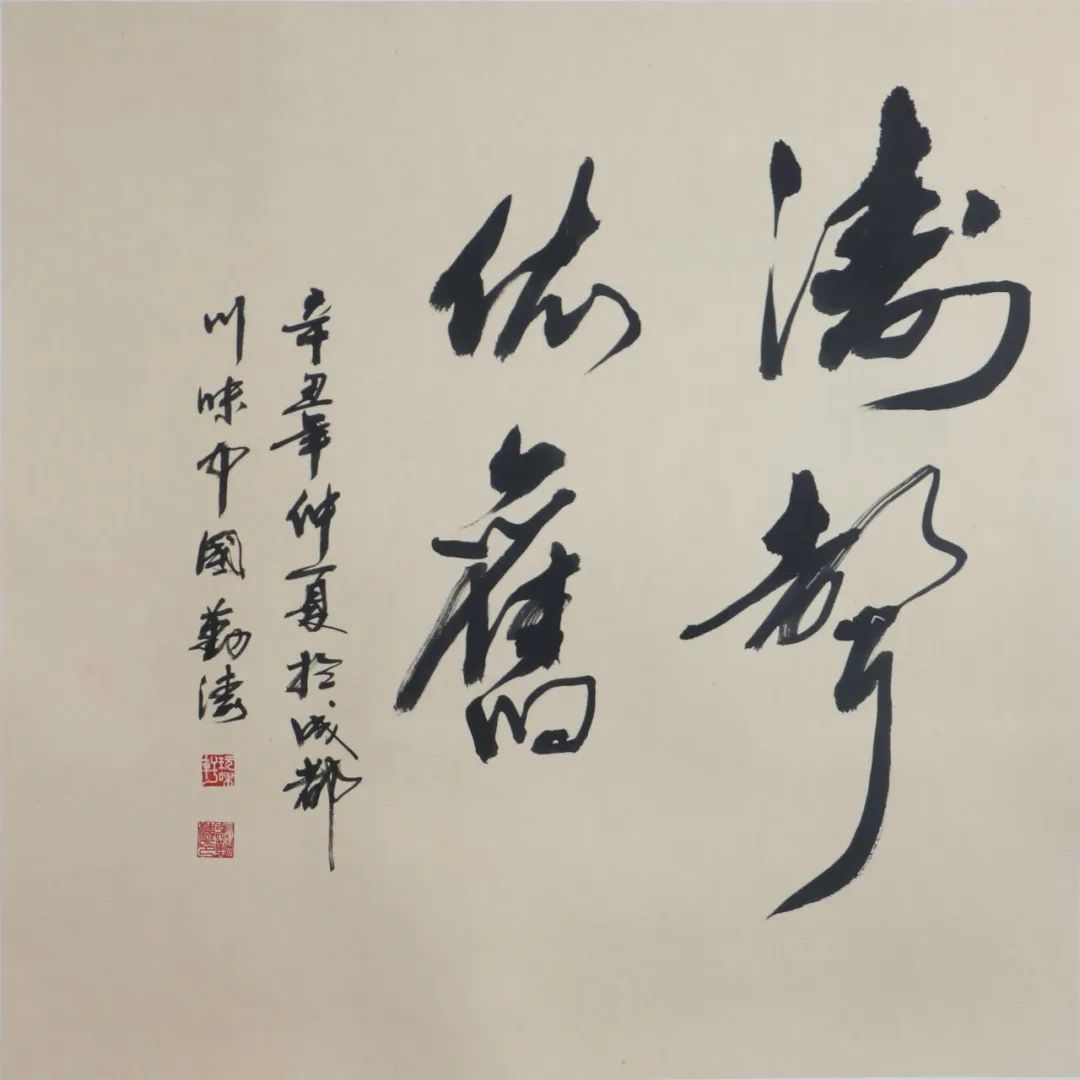 濤聲
依舊
辛丑年仲夏於成都
川味中國勤濤